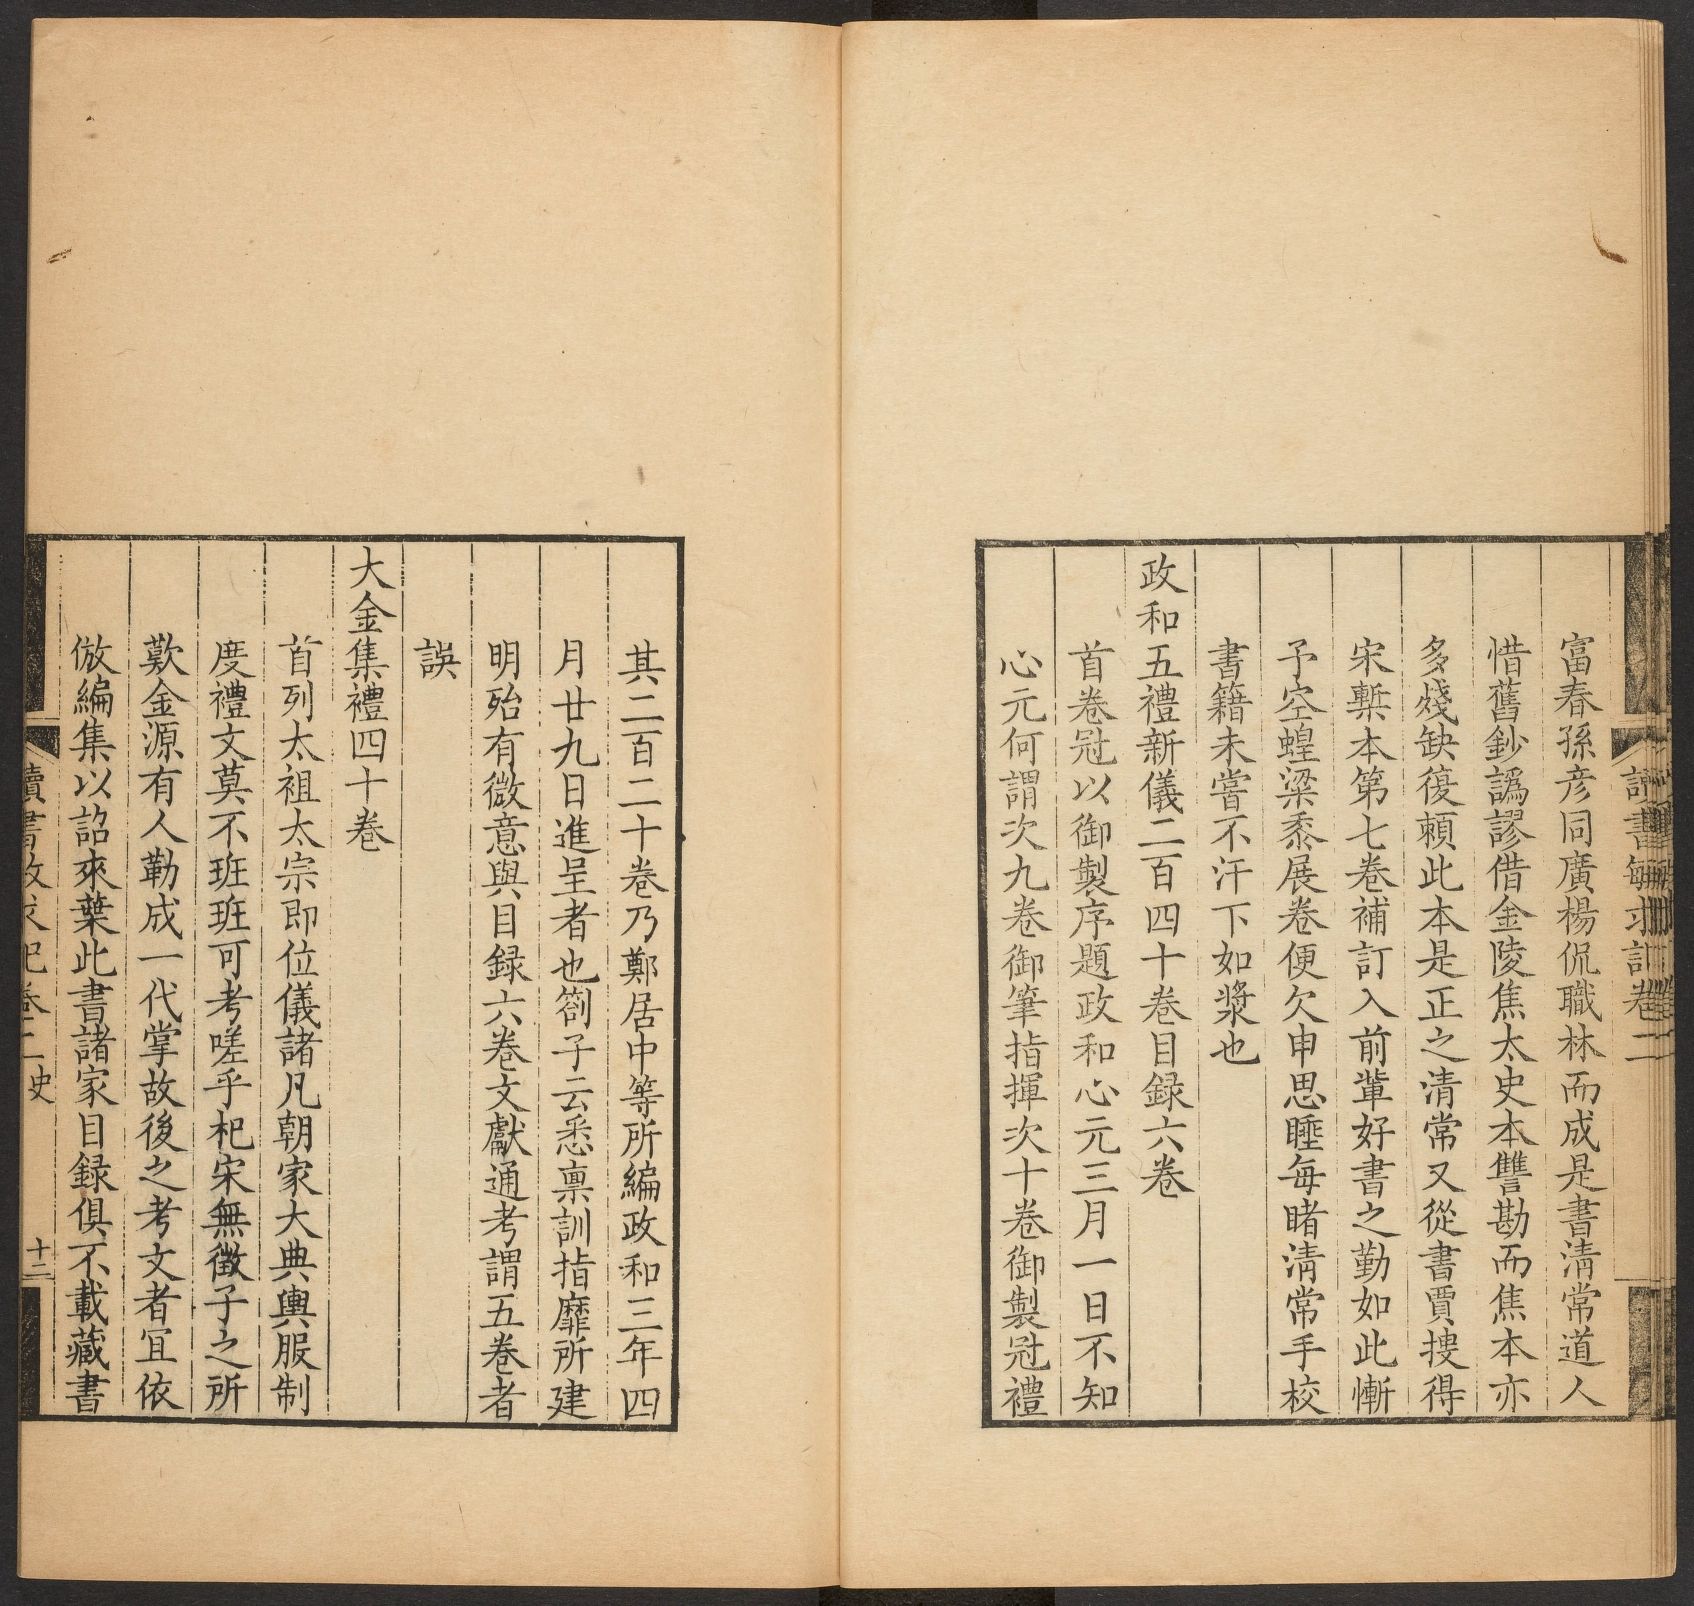 富春孫彥同廣楊侃職林而成是書淸常道人
惜舊鈔譌謬借金陵焦太史本讐勘而焦本亦
多殘缺復賴此本是正之清常又從書賈摟得
宋槧本第七卷補訂入前輩好書之勤如此慚
予空蝗粱黍展卷便欠申思睡每睹淸常手校
書籍未嘗不汗下如漿也
政和五禮新儀二百四十卷目録六卷
首卷冠以御製序題政和心元三月一日不知
心元何謂次九卷御筆指揮次十卷御製冠禮
其二百二十卷乃鄭居中等所編政和三年四
月廿九日進呈者也劄子云悉禀訓指靡所建
明殆有微意與目録六卷文獻通考謂五卷者
誤
大金集禮四十卷
首列太祖太宗即位儀諸凡朝家大典輿服制
度禮文莫不班班可考嗟乎杞宋無徵子之所
歎金源有人勒成一代掌故後之考文者宜依
倣編集以詔來葉此書諸家目録俱不載藏書
讀書敏求記卷二史
十二